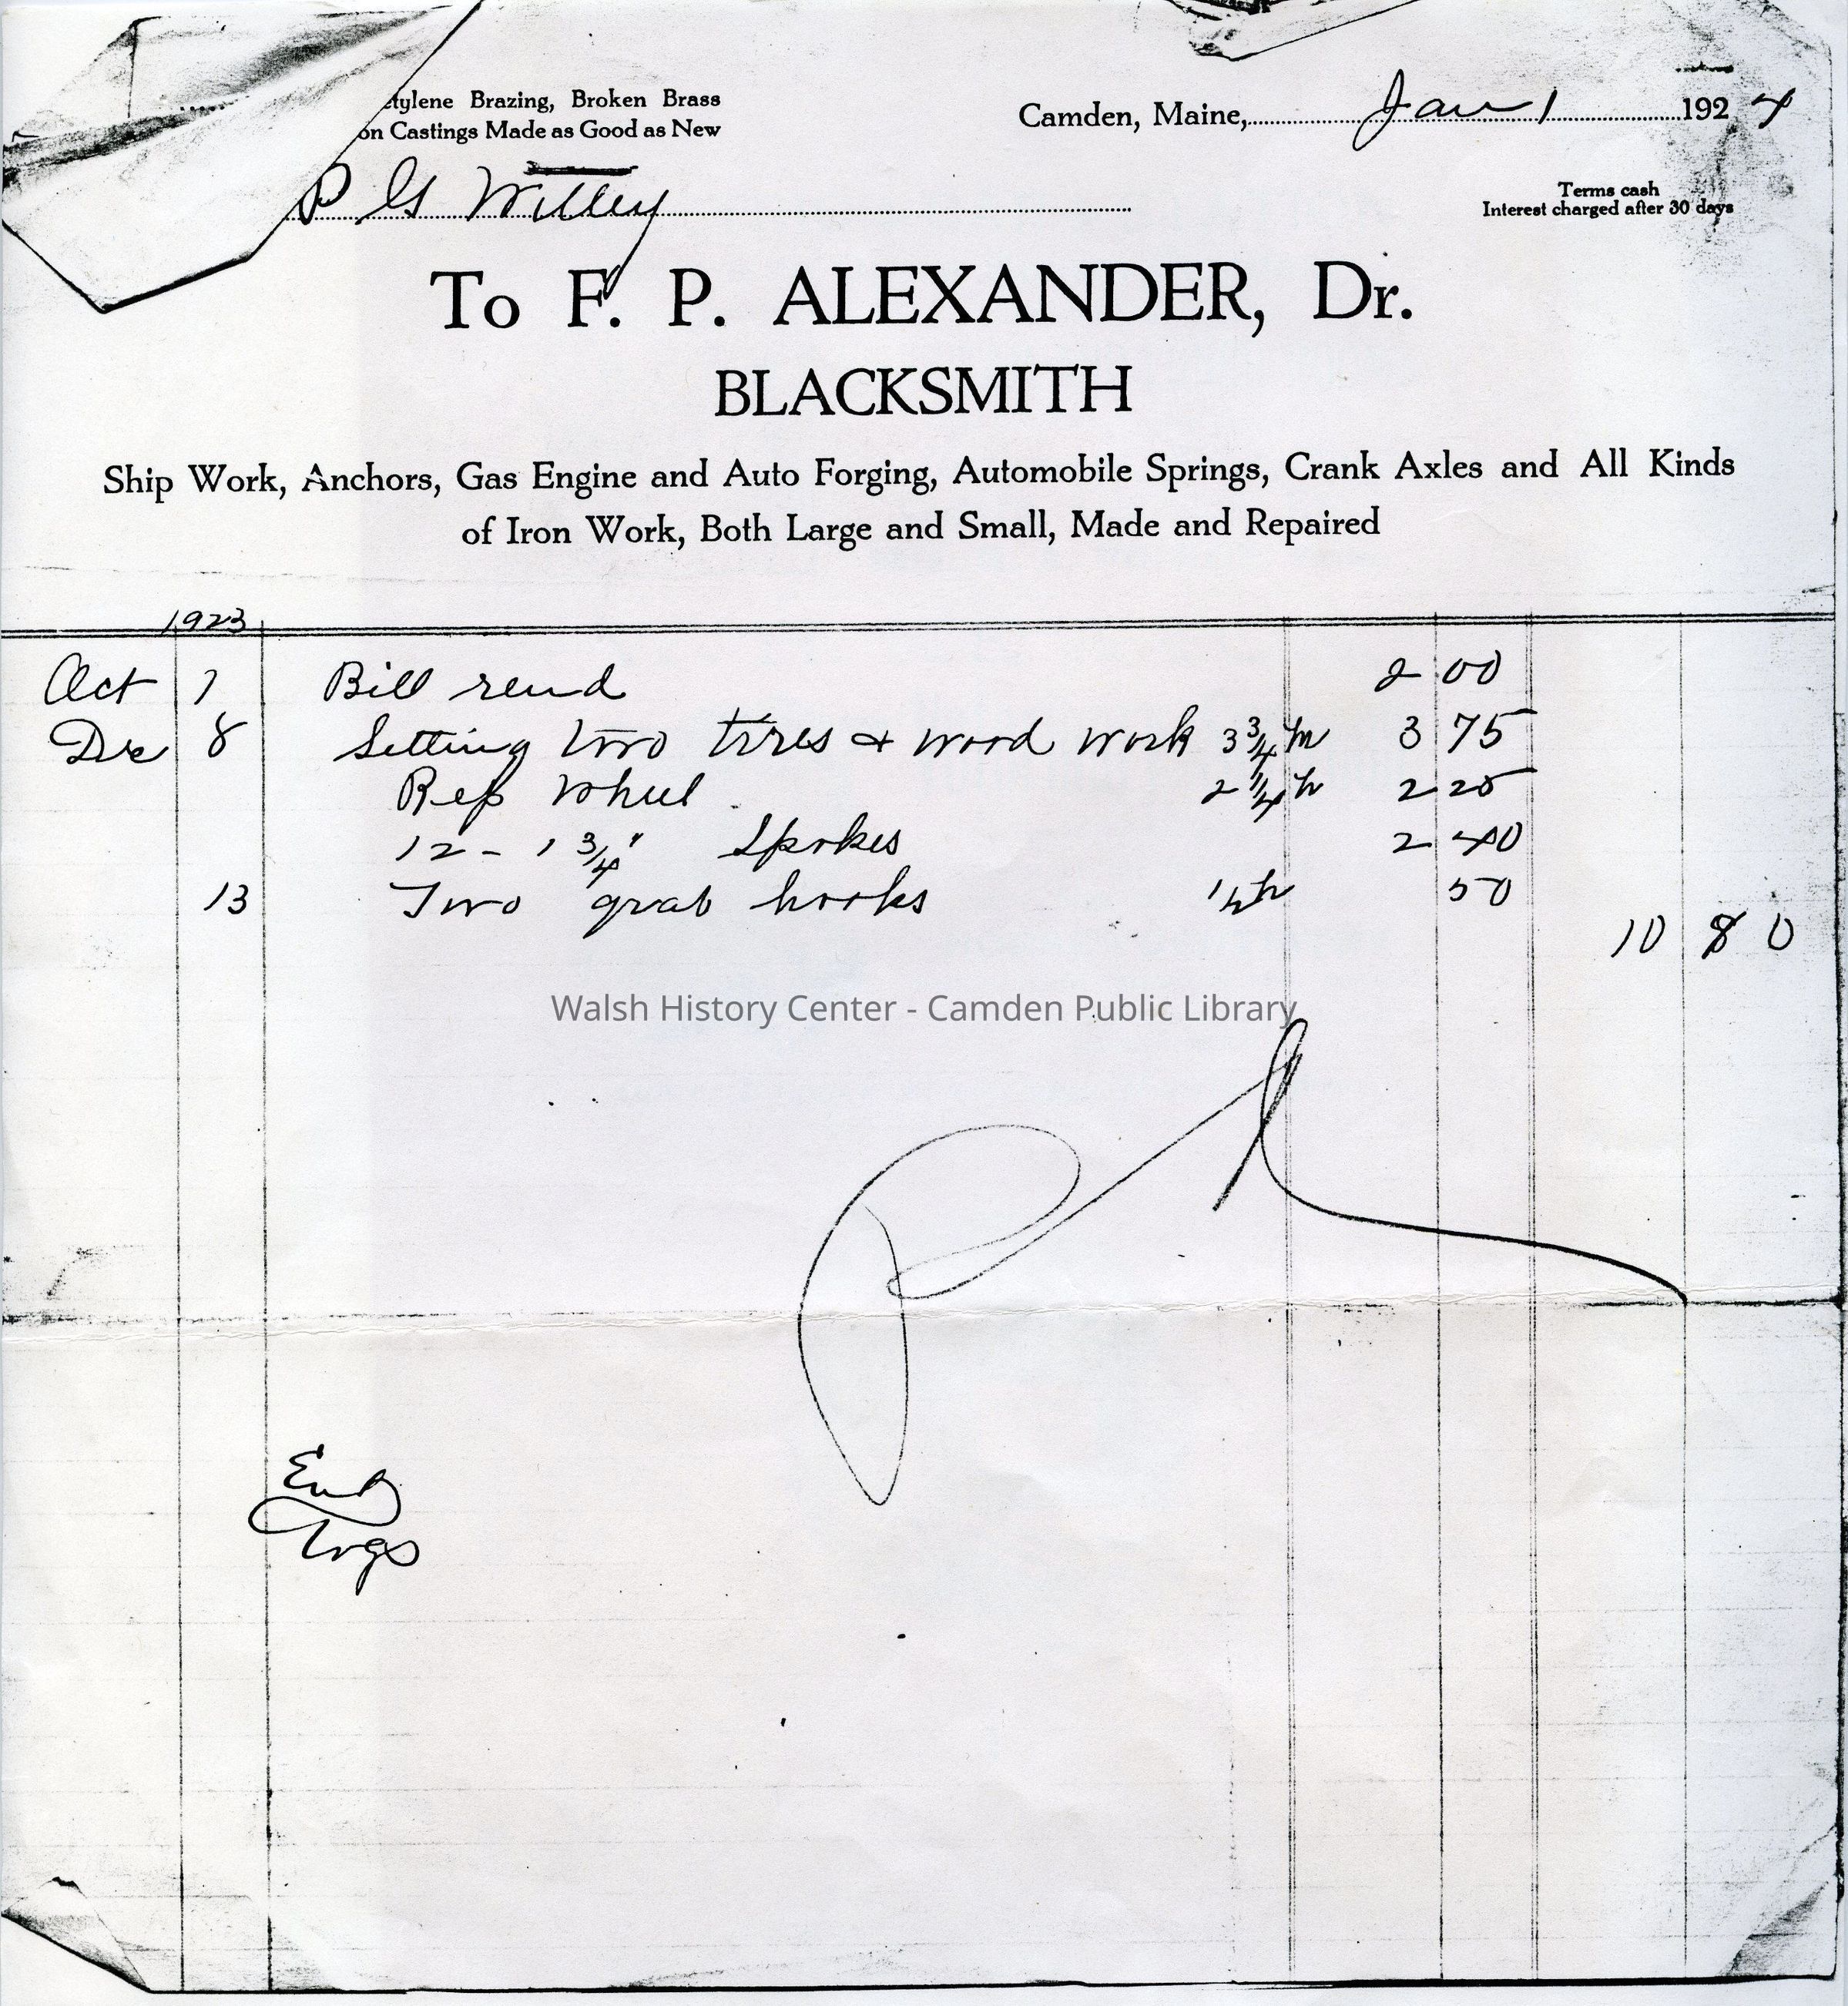 tylene Brazing, Broken Brass
on Castings Made as Good as New
Camden, Maine, Jan 1 1924
P G Willey
Terms cash
Interest charged after 30 days
To F. P. ALEXANDER, Dr.
BLACKSMITH
Ship Work, Anchors, Gas Engine and Auto Forging, Automobile Springs, Crank Axles and All Kinds
of Iron Work, Both Large and Small, Made and Repaired
1923
Oct 1 Bill rend 2 00
Dec 8 Setting two tires & wood work 3 3/4 h 3 75
Rep wheel 2 1/4 h 2 25
12 - 1 3/4" Spokes 2 40
13 Two grab hooks 1/2 h 50
10 80
Walsh History Center - Camden Public Library